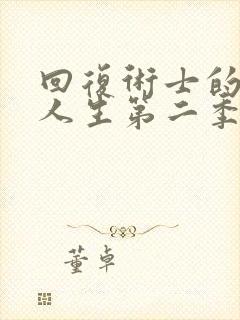 回復術士的
人生第二季
董卓